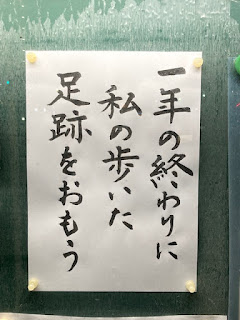 一年の終わりに
私の歩いた
足跡をおもう